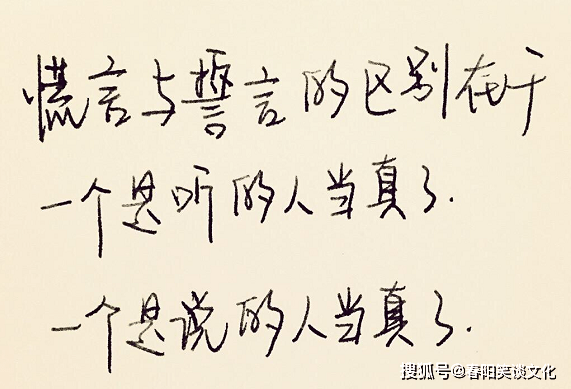 慌言与誓言的区别在于
一个是听的人当真了.
一个是说的人当真了.
搜狐号@春阳笑谈文化